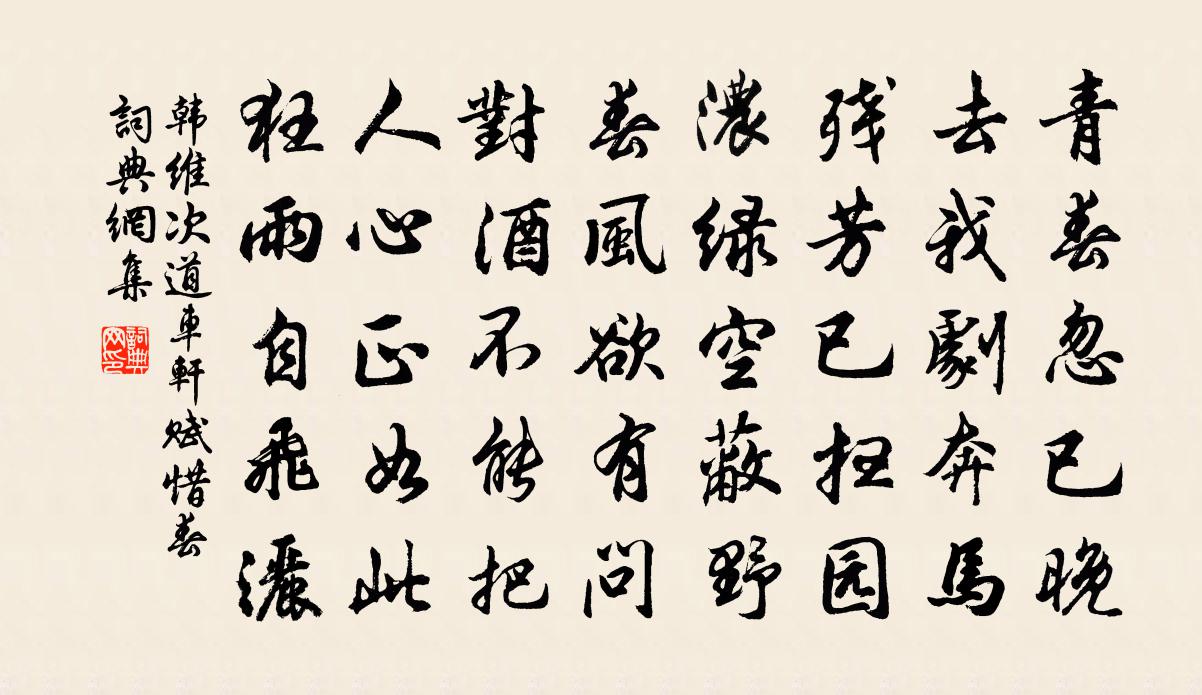 青春忽已晚
去我劇奔馬
残芳已扫园
濃绿空蔽野
春風欲有问
對酒不能把
人心正如此
狂雨自飛灑
韩维次道車軒赋惜春
詞典網集
詞典网印